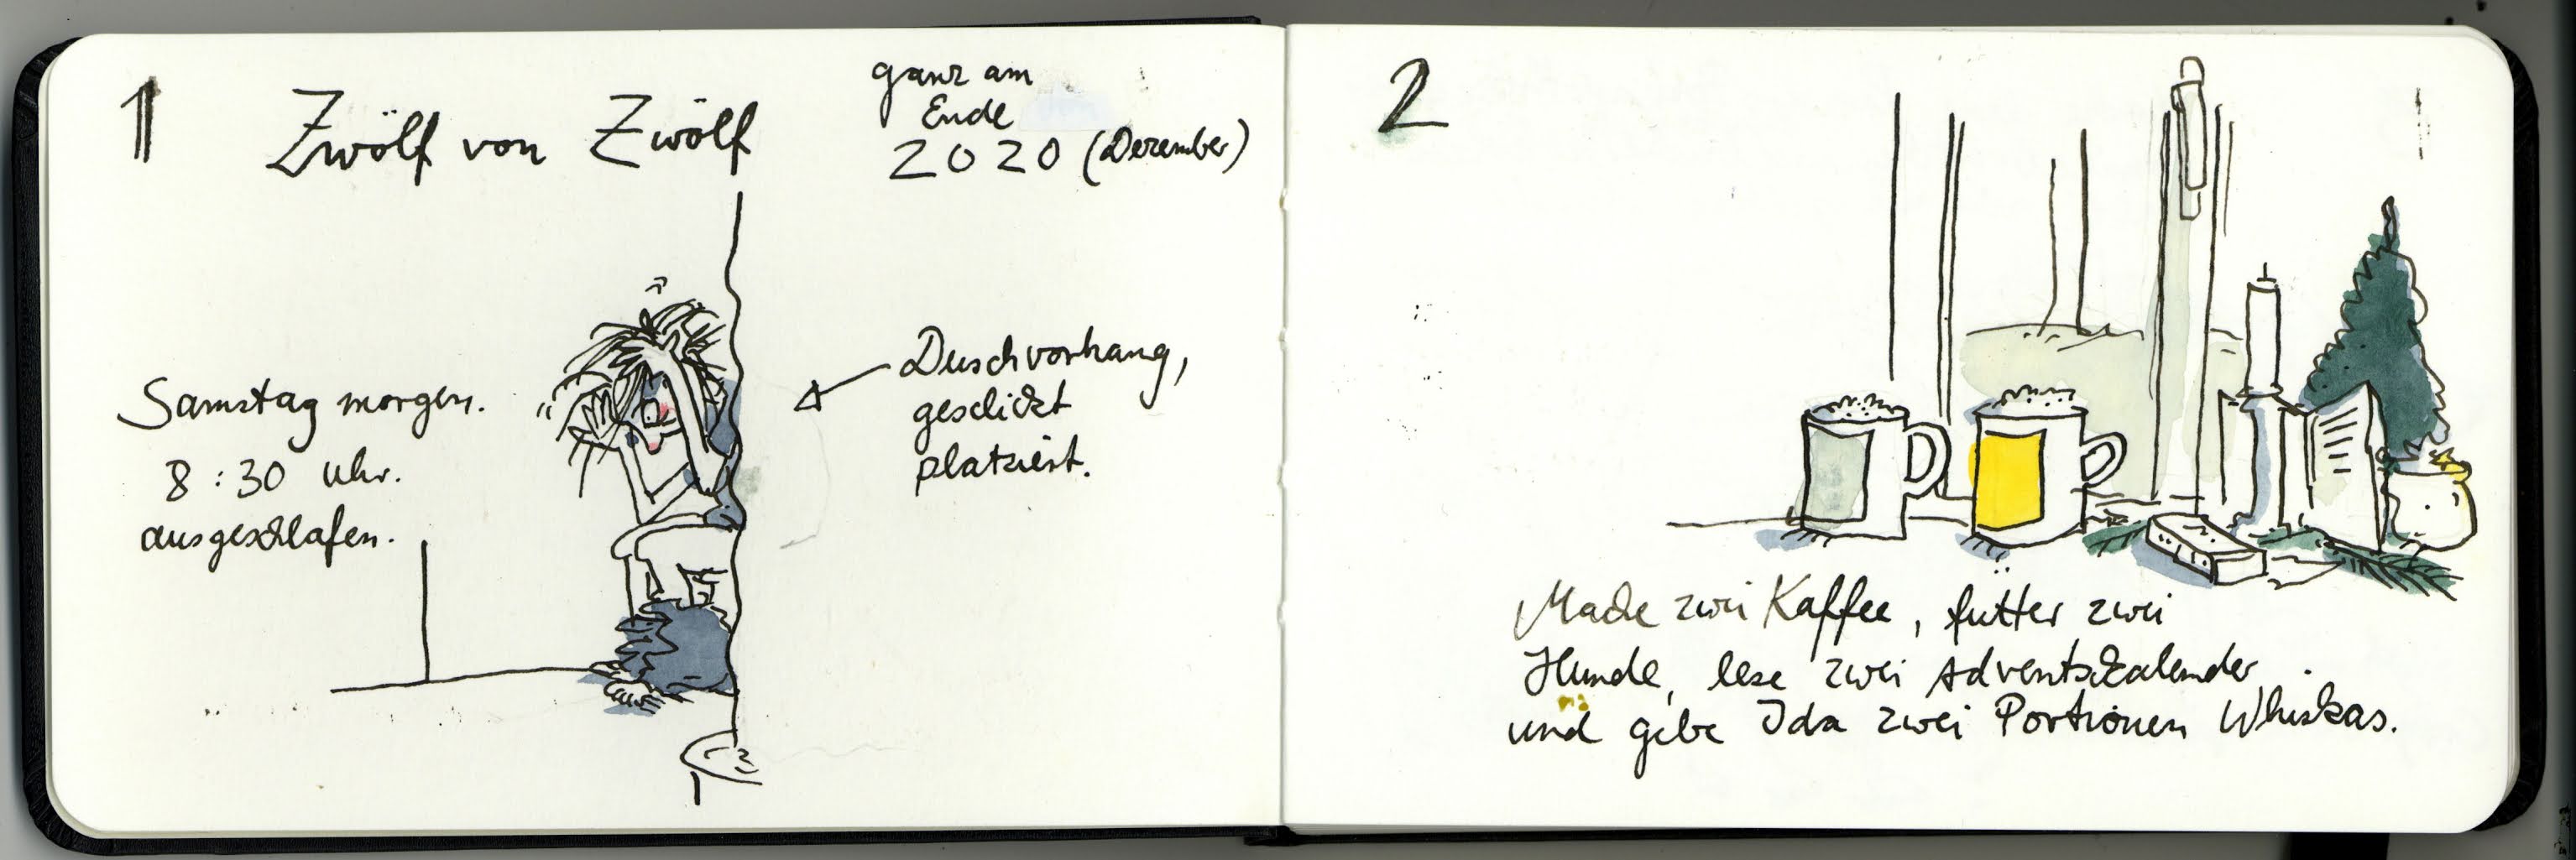 1
Zwölf von Zwölf
ganz am
Ende
2020 (Dezember)
Samstag morgen.
8:30 Uhr.
ausgeschlafen.
Duschvorhang,
geschickt
platziert.
2
Mache zwei Kaffee, futter zwei
Hunde, lese zwei Adventskalender
und gebe Ida zwei Portionen Whiskas.